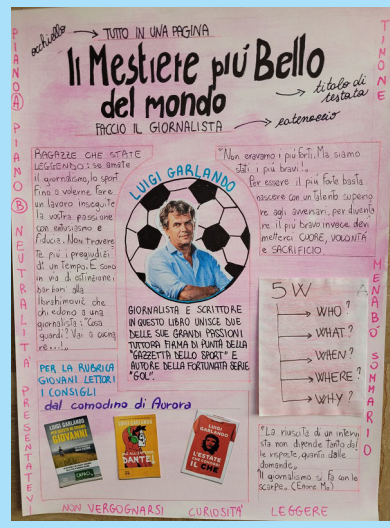 occhiello → TUTTO IN UNA PAGINA
Il Mestiere più Bello
del mondo
→ titolo di
testata
FACCIO IL GIORNALISTA → catenaccio
PIANO A PIANO B NEUTRALITÀ PRESENTATEVI
TIMONE
MENABÒ SOMMARIO
RAGAZZE CHE STATE
LEGGENDO: se amate
il giornalismo, lo sport
fino a volerne fare
un lavoro inseguite
la vostra passione
con entusiasmo e
fiducia. Non troverete
più i pregiudizi
di un tempo. E sono
in via di estinzione i
barbari alla
Ibrahimović che
chiedono a una
giornalista: "Cosa
guardi? Vai a cucina
re..."
LUIGI GARLANDO
GIORNALISTA E SCRITTORE
IN QUESTO LIBRO UNISCE DUE
DELLE SUE GRANDI PASSIONI
TUTTORA FIRMA DI PUNTA DELLA
"GAZZETTA DELLO SPORT" E
AUTORE DELLA FORTUNATA SERIE
"GOL".
"Non eravamo i più forti. Ma siamo
stati i più bravi".
Per essere il più forte basta
nascere con un talento superio
re agli avversari, per diventa
re il più bravo invece devi
metterci CUORE, VOLONTÀ
e SACRIFICIO.
5W
WHO?
WHAT?
WHEN?
WHERE?
WHY?
PER LA RUBRICA
GIOVANI LETTORI
I CONSIGLI
dal comodino di Aurora
LUIGI GARLANDO
GIOVANNI
CAPACI
LUIGI GARLANDO
DANTE!
LUIGI
GARLANDO
L'ESTATE
CHE CONOBBI
IL CHE
"La riuscita di un intervi
sta non dipende tanto dal
le risposte, quanto dalle
domande.
Il giornalismo si fa con le
scarpe.
NON VERGOGNARSI CURIOSITÀ LEGGERE